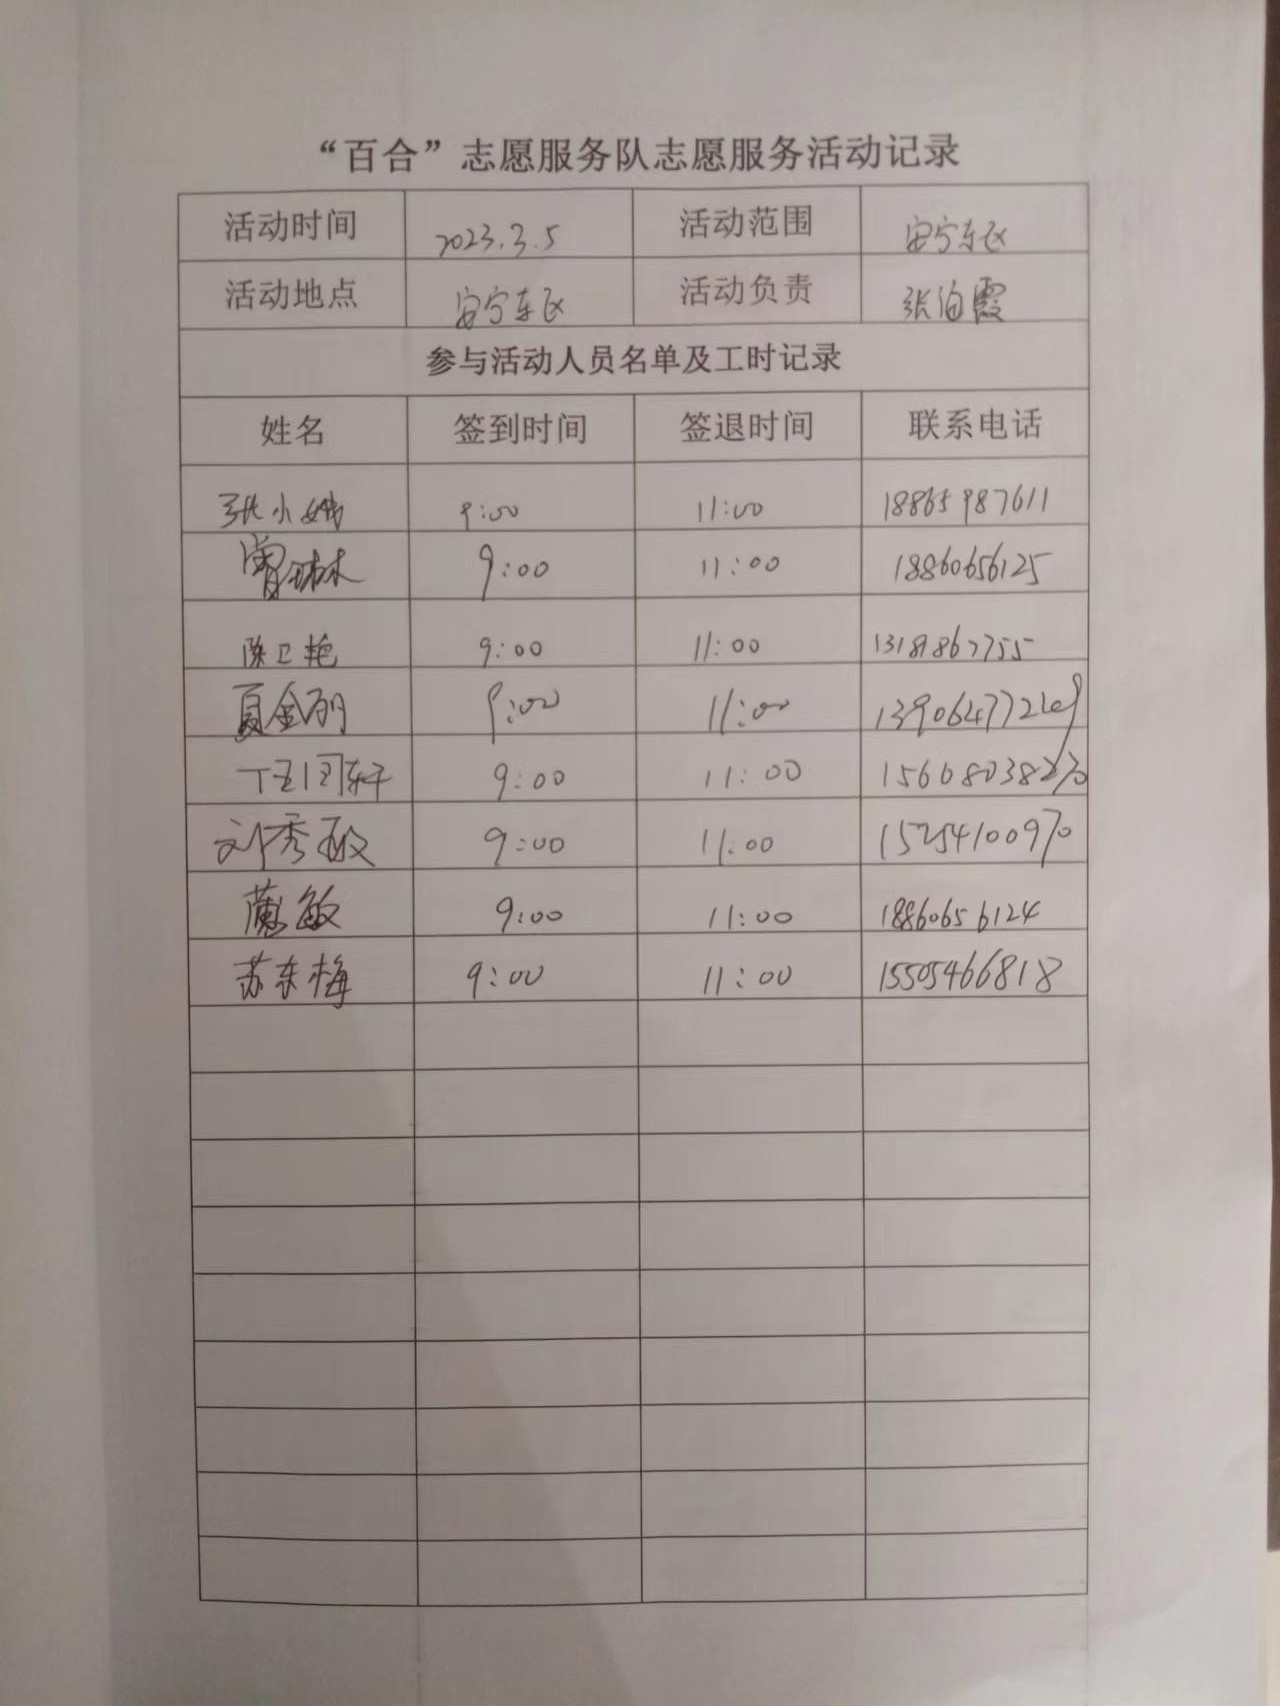 “百合”志愿服务队志愿服务活动记录
活动时间 2023.3.5 活动范围 安宁东区
活动地点 安宁东区 活动负责 张海霞
参与活动人员名单及工时记录
姓名 签到时间 签退时间 联系电话
张小娥 9:00 11:00 18865987611
曾琳 9:00 11:00 18860656125
陈卫艳 9:00 11:00
夏金丽 9:00 11:00
9:00 11:00
刘秀敏 9:00 11:00 15254100970
敏 9:00 11:00 18860656124
苏东梅 9:00 11:00 15505466818